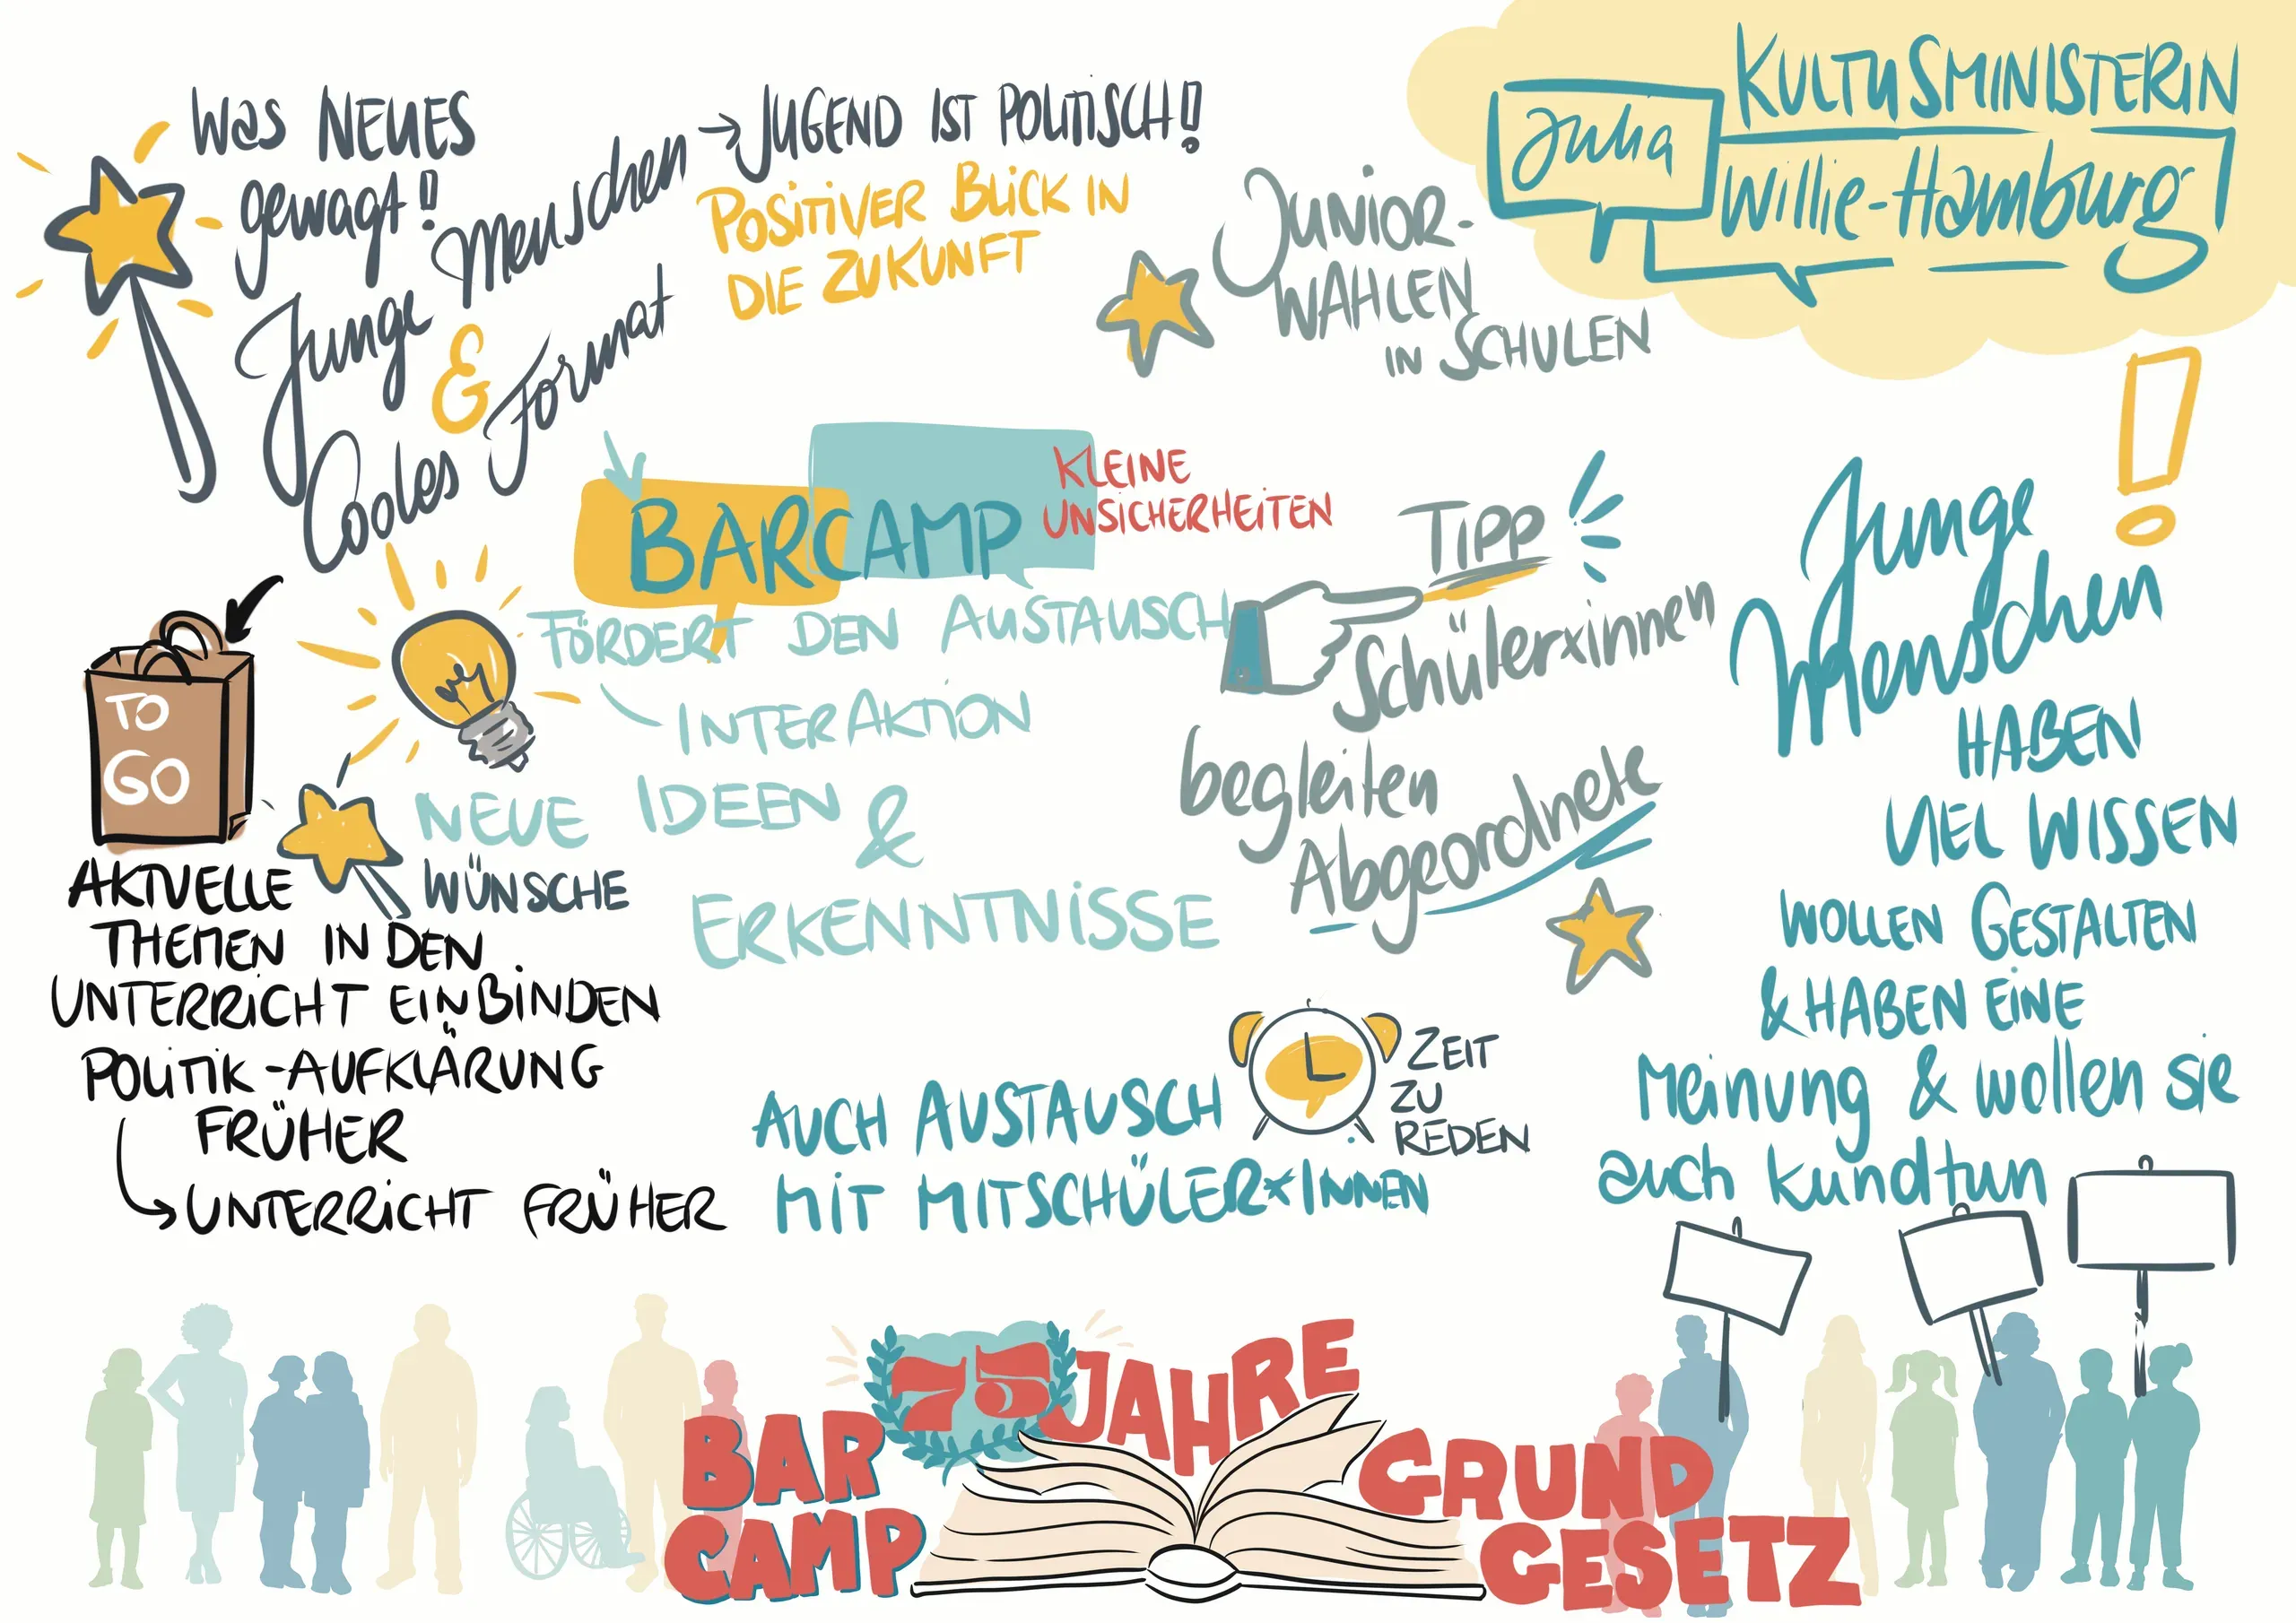 Was NEUES
gewagt!!
Junge Menschen
&
Cooles Format
→ JUGEND IST POLITISCH!!
POSITIVER BLICK IN
DIE ZUKUNFT
JUNIOR-
WAHLEN
IN SCHULEN
KULTUSMINISTERIN
Julia
Willie-Hamburg
BARCAMP
KLEINE
UNSICHERHEITEN
FÖRDERT DEN AUSTAUSCH
INTERAKTION
NEUE IDEEN &
ERKENNTNISSE
WÜNSCHE
TO
GO
AKTUELLE
THEMEN IN DEN
UNTERRICHT EINBINDEN
POLITIK-AUFKLÄRUNG
FRÜHER
UNTERRICHT FRÜHER
TIPP
Schülerxinnen
begleiten
Abgeordnete
AUCH AUSTAUSCH
MIT MITSCHÜLERXINNEN
ZEIT
ZU
REDEN
!
Junge
Menschen
HABEN
VIEL WISSEN
WOLLEN GESTALTEN
& HABEN EINE
Meinung & wollen sie
auch kundtun
BAR
CAMP
75 JAHRE
GRUND
GESETZ